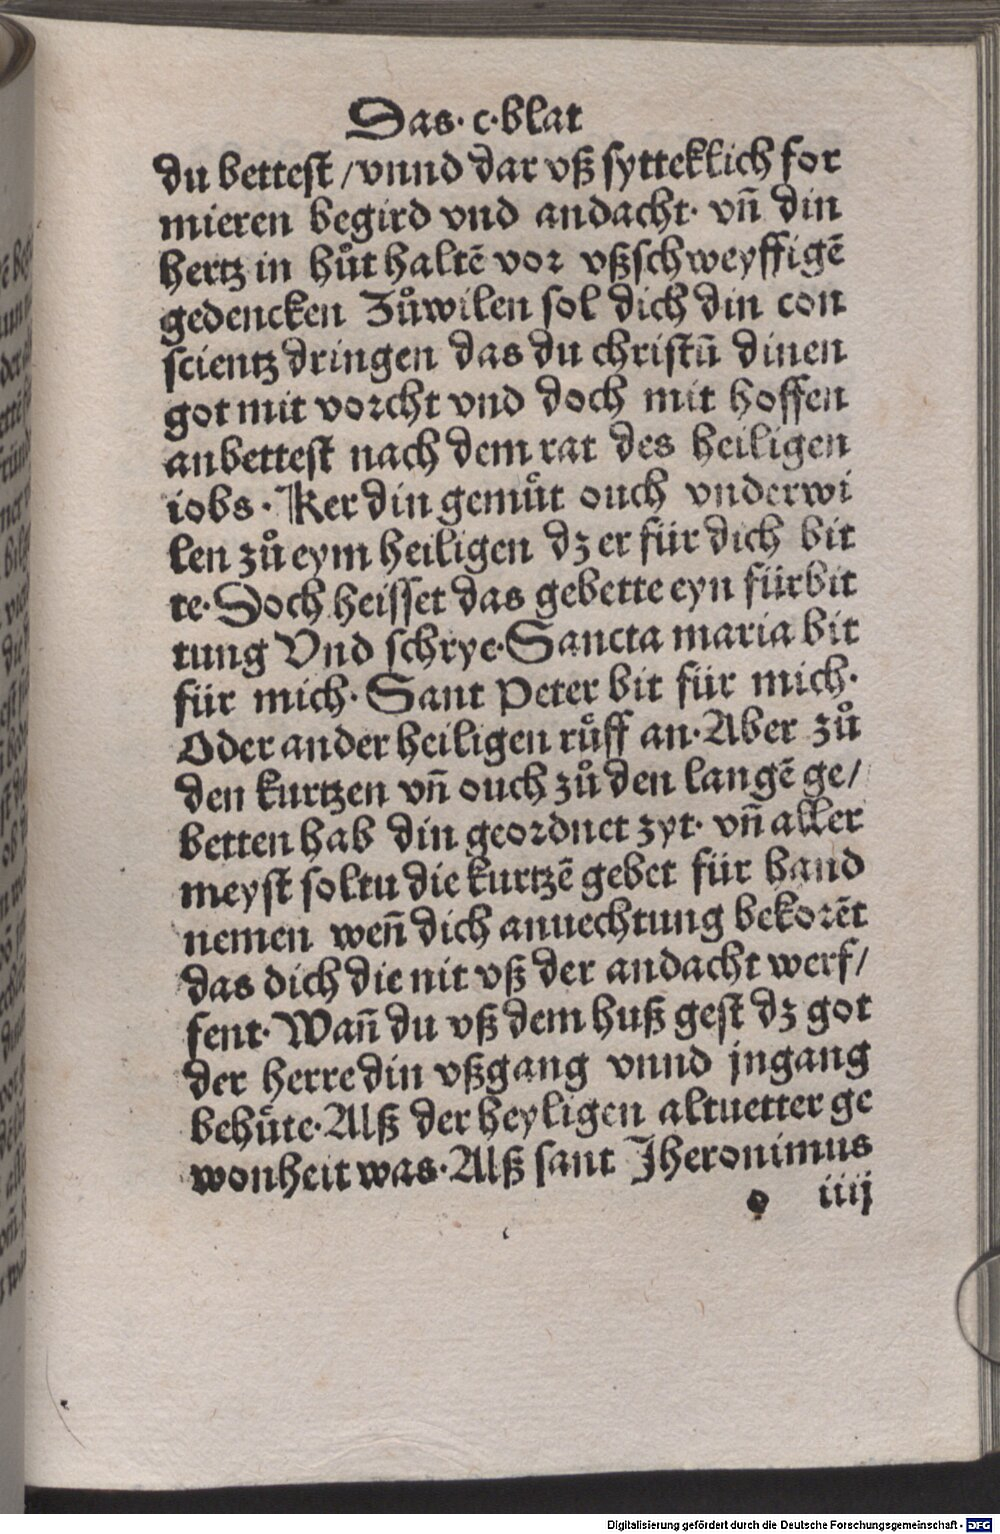 Das· c·blat
du bettest /vnnd dar vß sytteklich for
mieren begird vnd andacht· vñ din
hertz in hůt haltē vor vßschweyffigē
gedencken Zůwilen sol dich din con
scientz dringen das du christū dinen
got mit vorcht vnd doch mit hoffen
anbettest nach dem rat des heiligen
iobs· Ker din gemůt ouch vnderwi
len zů eym heiligen dz er für dich bit
te· Doch heisset das gebette eyn fürbit
tung Vnd schrye· Sancta maria bit
für mich· Sant Peter bit für mich·
Oder ander heiligen růff an· Aber zů
den kurtzen vñ ouch zů den langē ge/
betten hab din geordnet zyt· vñ aller
meyst soltu die kurtzē gebet für hand
nemen weñ dich anuechtung bekorēt
das dich die nit vß der andacht werf/
fent· Wañ du vß dem huß gest dz got
der herre din vßgang vnnd jngang
behůte· Alß der heyligen altuetter ge
wonheit was· Alß sant Jheronimus
o iiij
Digitalisierung gefördert durch die Deutsche Forschungsgemeinschaft - DFG